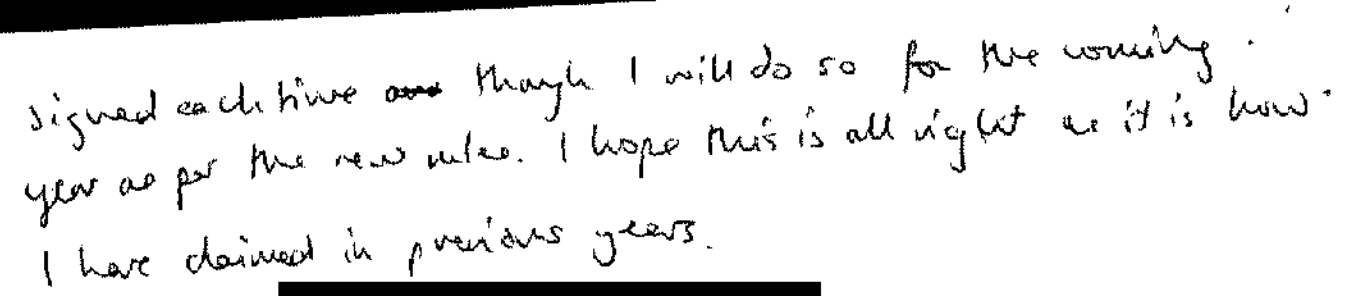 signed each time though I will do so for the coming
year as per the new rules. I hope this is all right as it is how
I have claimed in previous years.